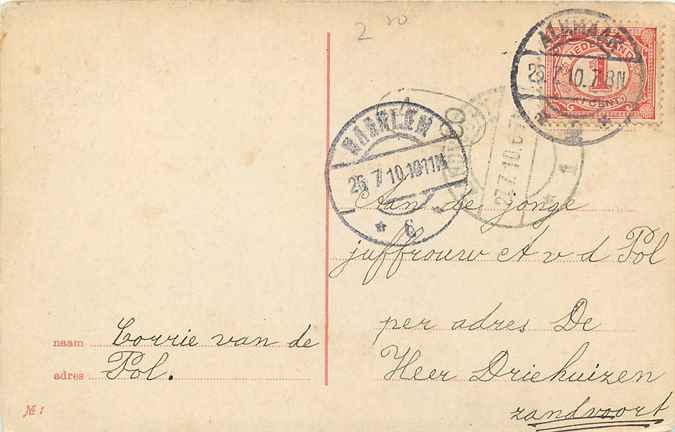 2 10
ALKMAAR
NEDERLAND
1
CENT
HAARLEM
25 7 10.10-11N
6
1
Aan de jonge
juffrouw A v d Pol
per adres De
Heer Driehuizen
zandvoort
naam Corrie van de
adres Pol.
№ 1